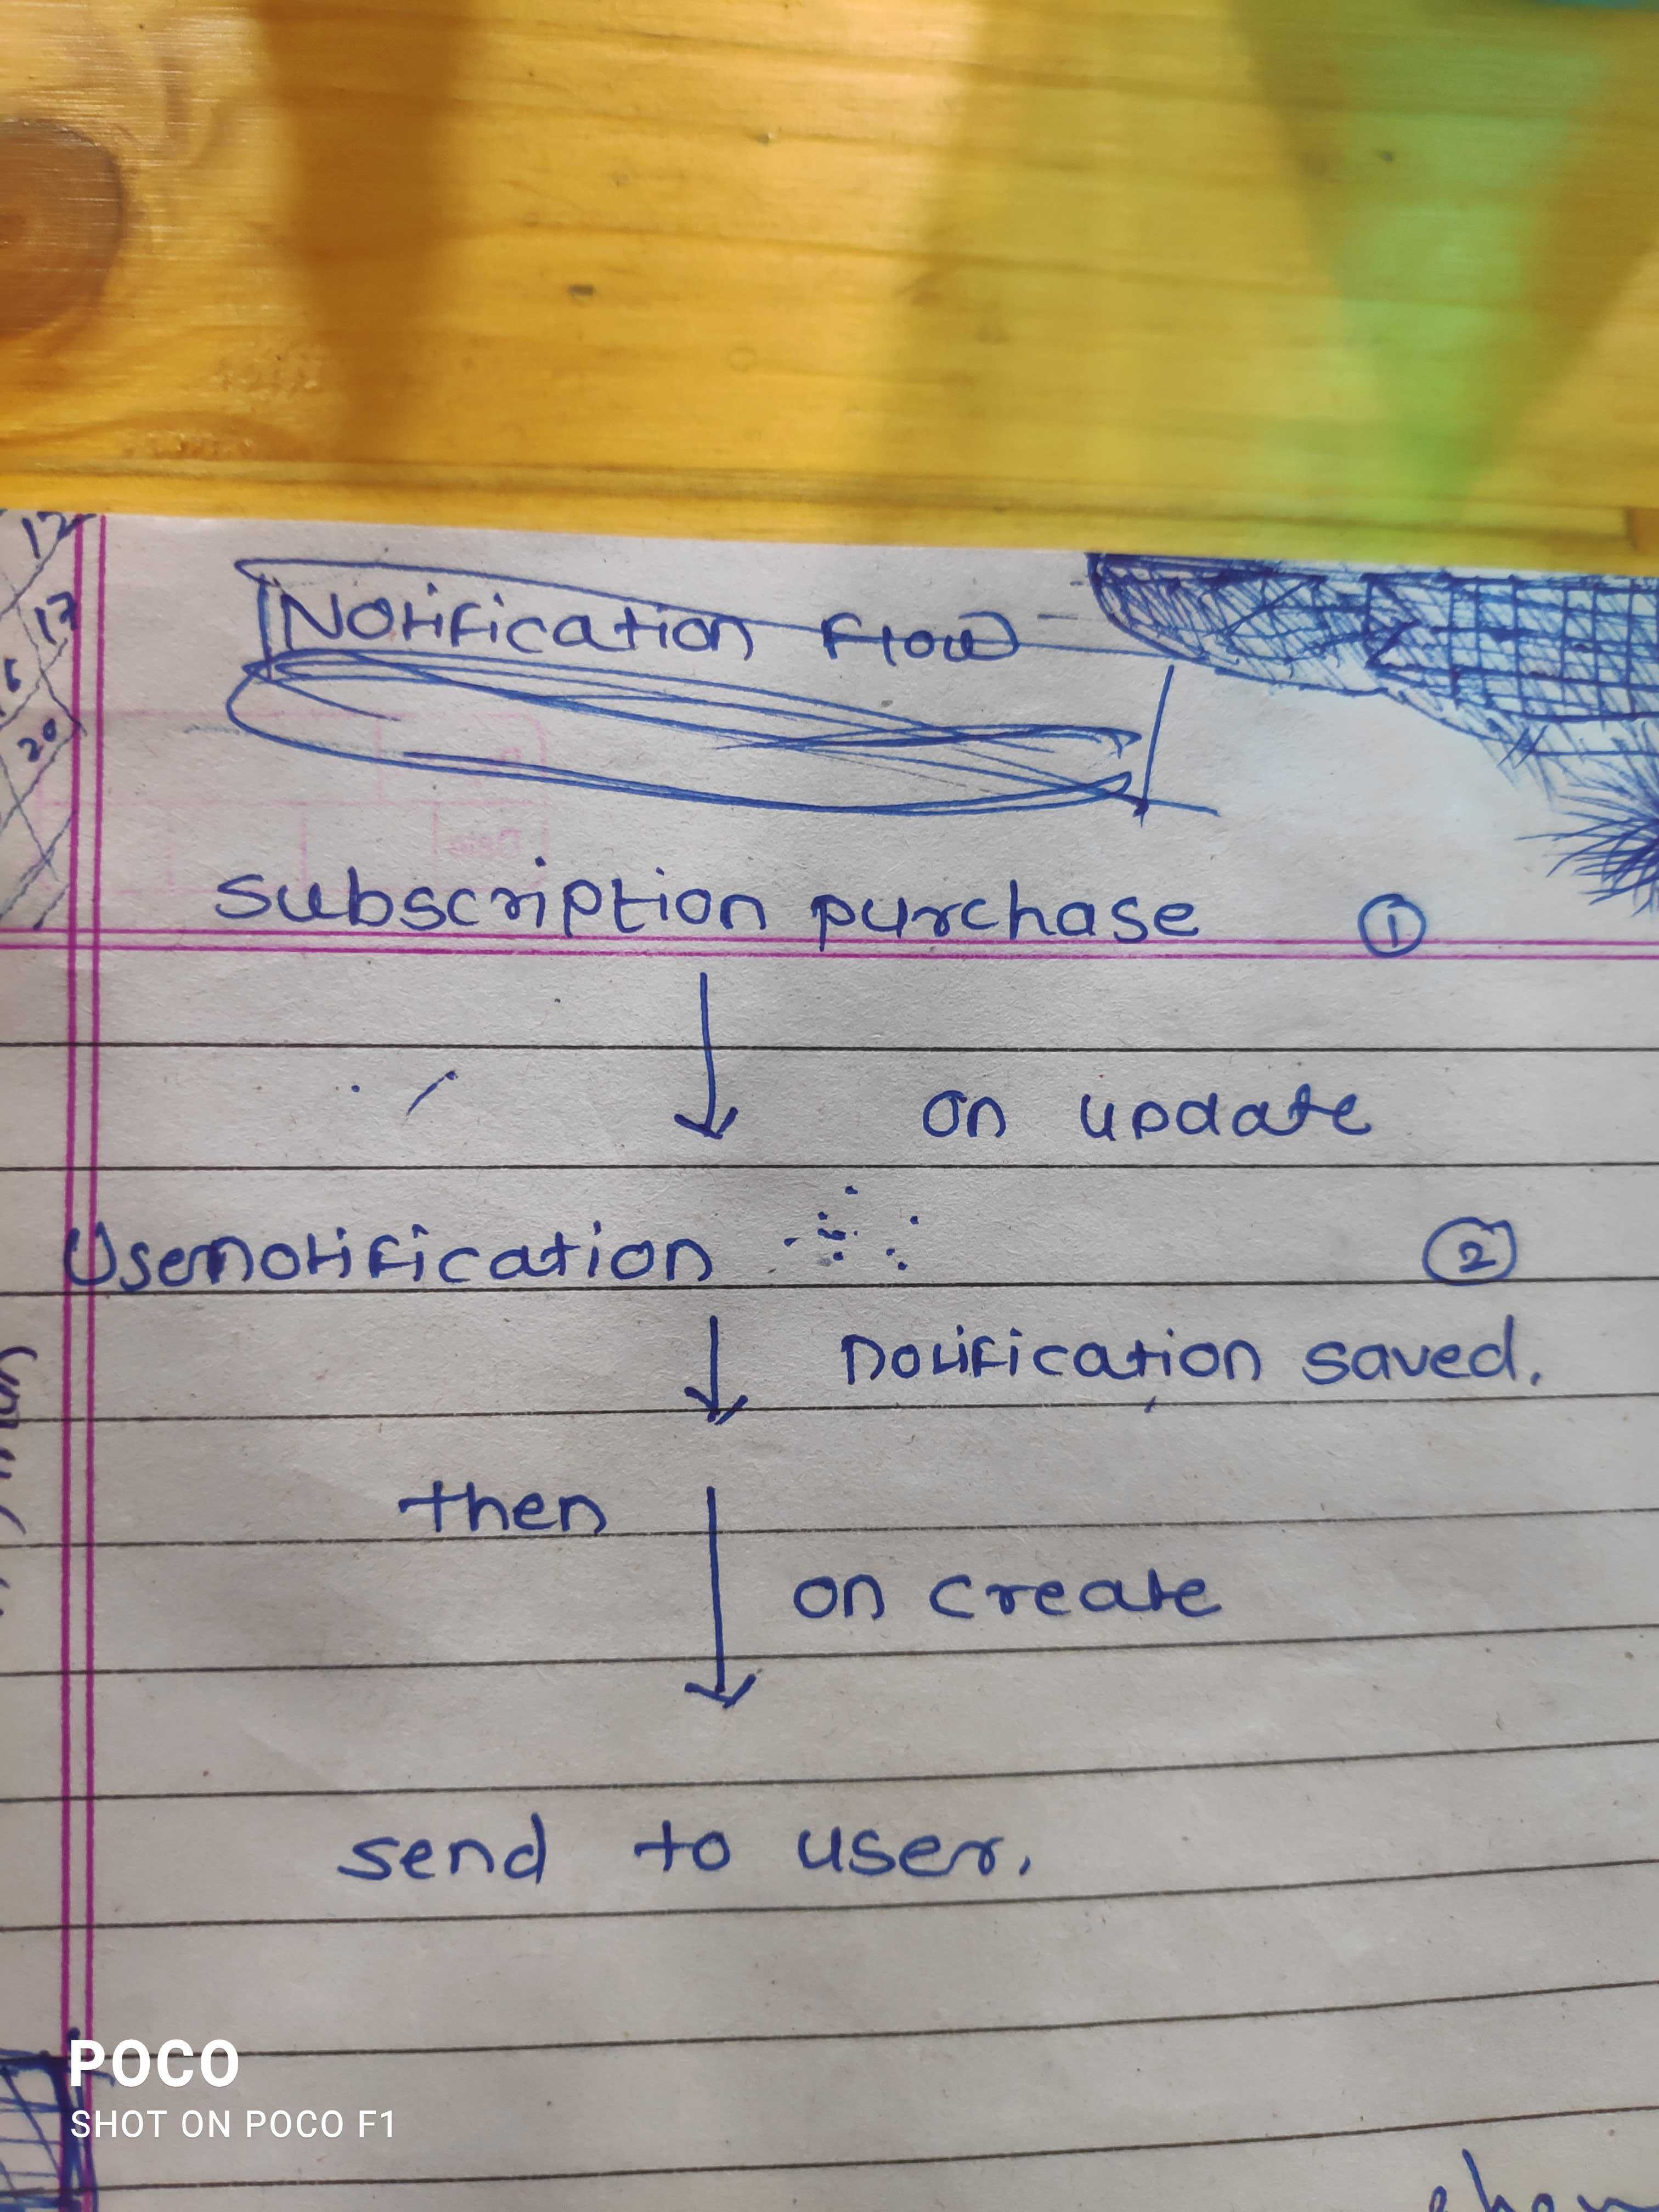 12
17
20
Notification Flow
subscription purchase ①
on update
Usernotification ②
Notification saved.
then
on create
send to user.
POCO
SHOT ON POCO F1